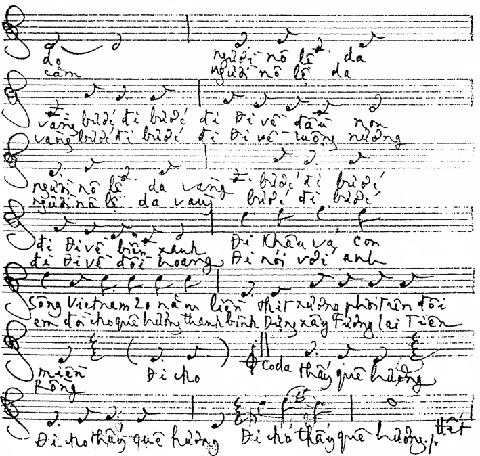 da người nô lệ da
cầm người nô lệ da
vàng bước đi bước đi Đi về đầu non
vàng bước đi bước đi Đi về ruộng nương
người nô lệ da vàng bước đi bước
người nô lệ da vàng bước đi bước
đi Đi về biển xanh Đi khâu vá con
đi Đi về đồi hoang Đi nói với anh
sông Vietnam 20 năm liền thịt xương phơi trên đồi
em đòi cho quê hương thanh bình Dựng xây Tương lai Tiên
miền Đi cho Coda thấy quê hương
Rồng
Đi cho thấy quê hương Đi cho thấy quê hương Hết